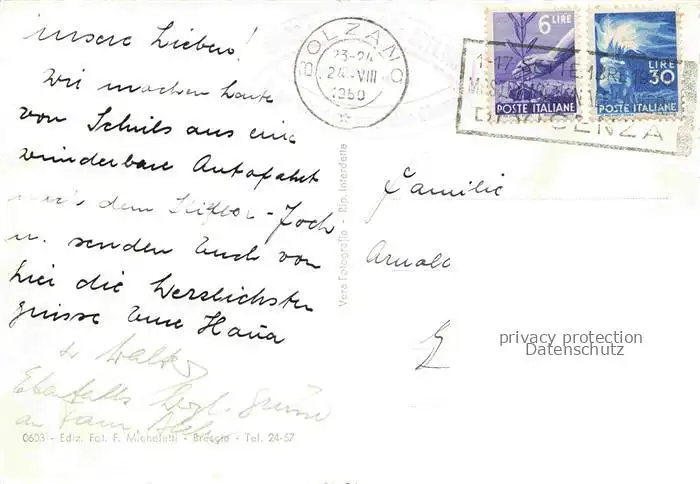 unsere Lieben!
Wir machen heute
von Schuls aus eine
wunderbare Autofahrt
dem Stilfser-Joch
u. senden Euch von
hier die herzlichsten
Grüsse Eure Hanna
u. Walter
Ebenfalls herzl. Grüsse
an Fam.
0603 - Ediz. Fot. F. Micheletti - Brescia - Tel. 24-57
Vera Fotografia - Rip. Interdetta
BOLZANO
23-24
24 VIII
1950
6 LIRE
POSTE ITALIANE
LIRE
30
POSTE ITALIANE
Familie
Arnold
privacy protection
Datenschutz